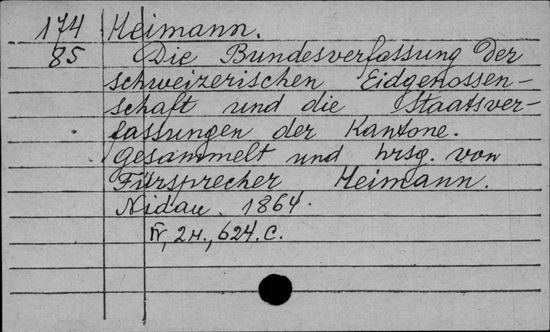 174 Heimann.
85 Die Bundesverfassung der
schweizerischen Eidgenossen-
schaft und die Staatsver-
fassungen der Kantone.
Gesammelt und hrsg. von
Fürsprecher Heimann.
Nidau. 1864.
IV, 2H., 624. C.